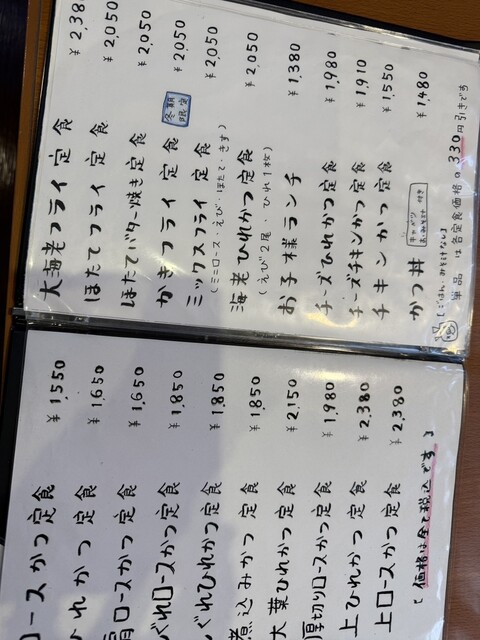 ロースかつ定食 ¥1,550
ひれかつ定食 ¥1,650
ロースかつ定食 ¥1,650
ぐれロースかつ定食 ¥1,850
ぐれひれかつ定食 ¥1,850
煮込みかつ定食 ¥1,850
大葉ひれかつ定食 ¥2,150
厚切りロースかつ定食 ¥1,980
上ひれかつ定食 ¥2,380
上ロースかつ定食 ¥2,380
「価格は全て税込です」
大海老フライ定食 ¥2,38
ほたてフライ定食 ¥2,050
ほたてバター焼き定食 ¥2,050
かきフライ定食 冬期限定 ¥2,050
ミックスフライ定食 ¥2,050
(ミニロース・えび・ほたて・きす)
海老ひれかつ定食 ¥2,050
(えび2尾・ひれ1枚)
お子様ランチ ¥1,380
チーズひれかつ定食 ¥1,980
チーズチキンかつ定食 ¥1,910
チキンかつ定食 ¥1,550
かつ丼 キャベツ おみそ汁付き ¥1,480
[ごはん、みそ汁なし]
単品は各定食価格の330円引きです